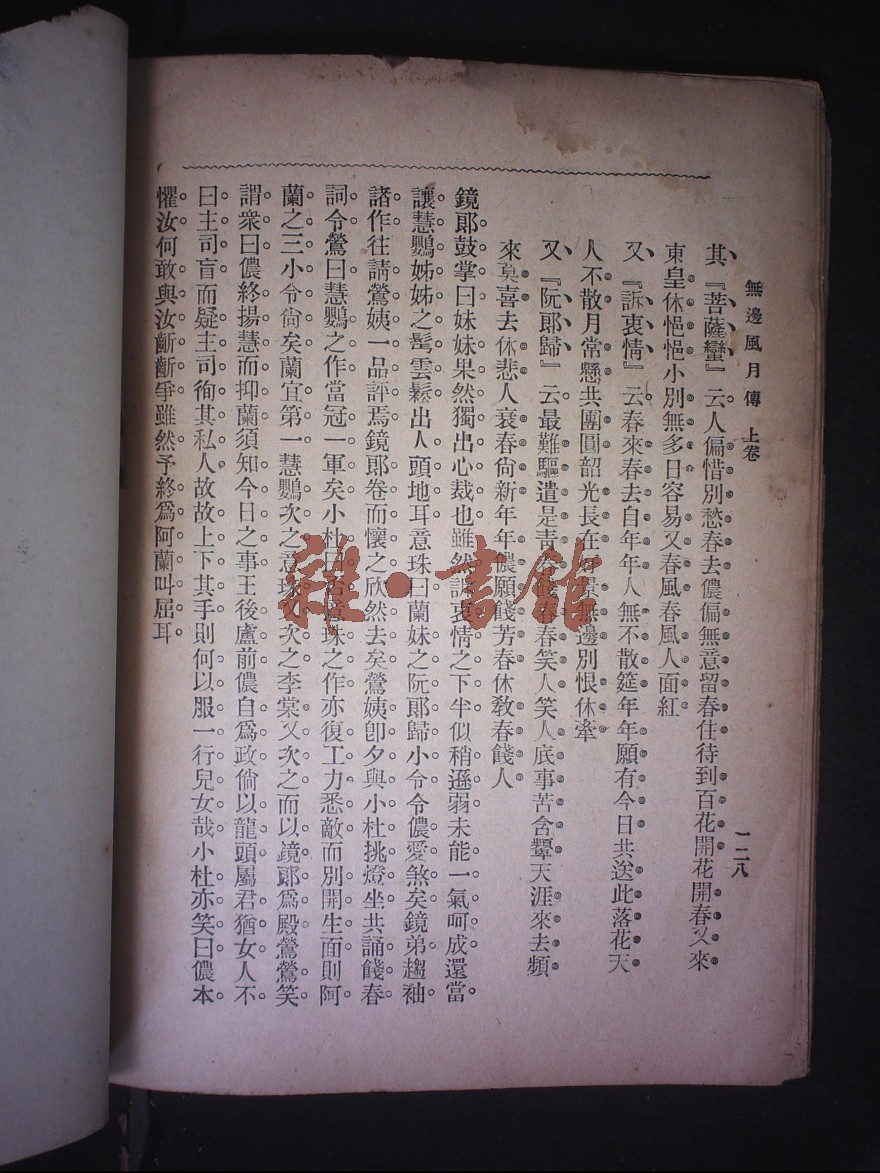 無邊風月傳 上卷 一二八
其『菩薩蠻』云人偏惜別愁春去儂偏無意留春住待到百花開花開春又來
東皇休悒悒小別無多日容易又春風春風人面紅
又『訴衷情』云春來春去自年年人無不散筵年年願有今日共送此落花天
人不散月常懸共團圓韶光長在好景無邊別恨休牽
又『阮郎歸』云最難驅遣是青春餞春春笑人笑人底事苦含顰天涯來去頻
來莫喜去休悲人衰春尙新年年儂願餞芳春休敎春餞人
鏡郎鼓掌曰妹妹果然獨出心裁也雖然訴衷情之下半似稍遜弱未能一氣呵成還當
讓慧鸚姊姊之髩雲鬆出人頭地耳意珠曰蘭妹之阮郎歸小令令儂愛煞矣鏡弟趨袖
諸作往請鶯姨一品評焉鏡郎卷而懷之欣然去矣鶯姨卽夕與小杜挑燈坐共誦餞春
詞令鶯曰慧鸚之作當冠一軍矣小杜曰否意珠之作亦復工力悉敵而別開生面則阿
蘭之三小令尙矣蘭宜第一慧鸚次之意珠又次之李棠又次之而以鏡郎爲殿鶯鶯笑
謂衆曰儂終揚慧而抑蘭須知今日之事王後盧前儂自爲政倘以龍頭屬君猶女人不
曰主司盲而疑主司徇其私人故故上下其手則何以服一行兒女哉小杜亦笑曰儂本
懼汝何敢與汝齗齗爭雖然予終爲阿蘭叫屈耳
雜·書館